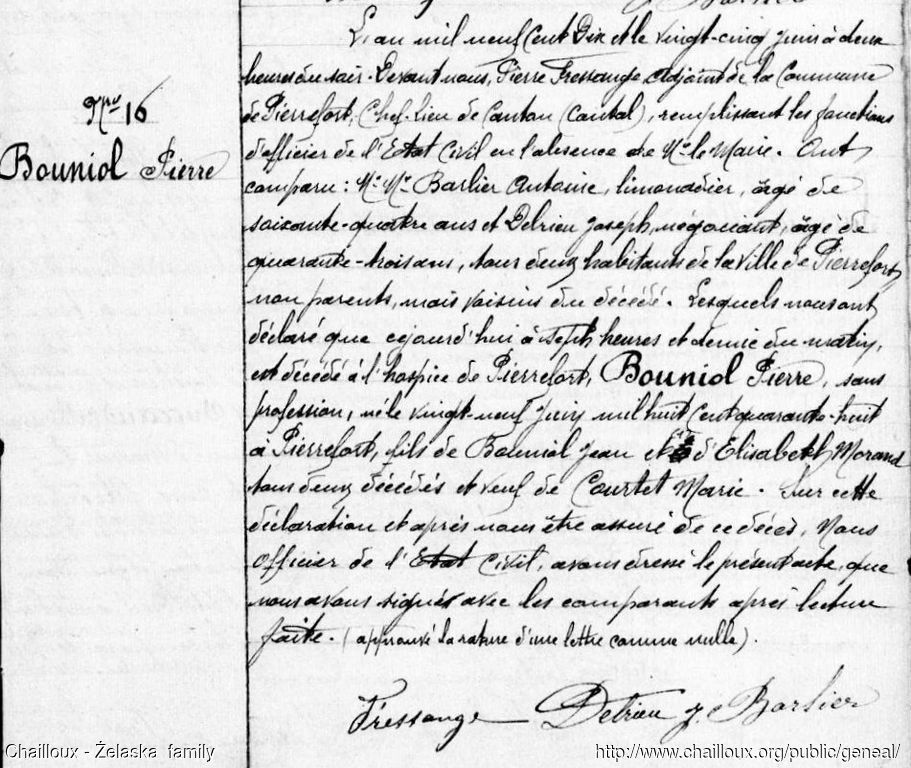 Nro 16
Bouniol Pierre
L'an mil neuf Cent Dix et le vingt-cinq juin à deux
heures du soir. Devant nous, Pierre Fressange adjoint de la Commune
de Pierrefort, Chef-lieu de Canton (Cantal), remplissant les fonctions
d'officier de l'Etat Civil en l'absence de Mr le Maire. Ont
comparu : Mr Mr Barlier Antoine, limonadier, âgé de
soixante-quatre ans et Delrieu Joseph, négociant, âgé de
quarante-trois ans, tous deux habitants de la ville de Pierrefort,
non parents, mais voisins du décédé. Lesquels nous ont
déclaré que cejourd'hui à sept heures et demie du matin,
est décédé à l'hospice de Pierrefort, Bouniol Pierre, sans
profession, né le vingt-neuf juin mil huit cent quarante-huit
à Pierrefort, fils de Bouniol Jean et d'Elisabeth Morand
tous deux décédés et veuf de Courtet Marie. Sur cette
déclaration et après nous être assuré de ce décès, Nous
Officier de l'Etat Civil, avons dressé le présent acte, que
nous avons signés avec les comparants après lecture
faite. (approuvé la rature d'une lettre comme nulle).
Fressange Delrieu J Barlier
Chailloux - Żelaska family
http://www.chailloux.org/public/geneal/